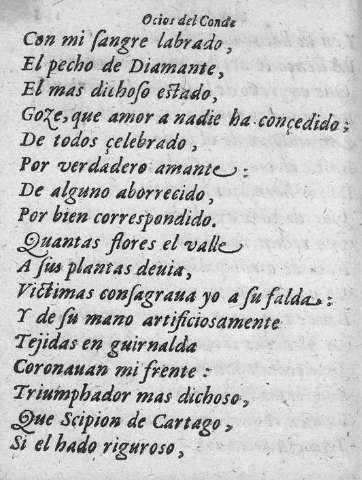 Ocios del Conde
Con mi ſangre labrado,
El pecho de Diamante,
El mas dichoſo eſtado,
Goze, que amor a nadie ha conçedido;
De todos çelebrado,
Por verdadero amante:
De alguno aborrecido,
Por bien correſpondido.
Quantas flores el valle
A ſus plantas deuia,
Victimas conſagraua yo a ſu falda:
Y de ſu mano artificioſamente
Tejidas en guirnalda
Coronauan mi frente:
Triumphador mas dichoſo,
Que Scipion de Cartago,
Si el hado riguroſo,